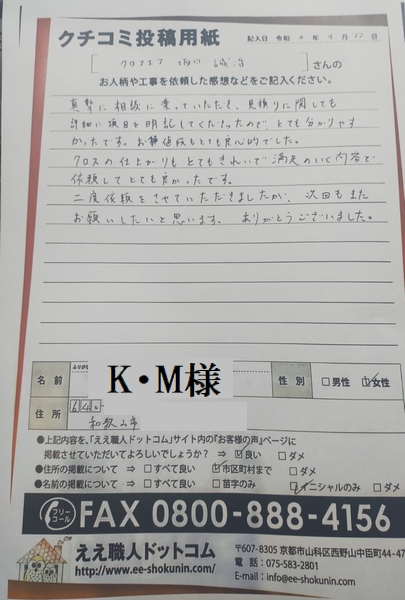 クチコミ投稿用紙
記入日 令和 4 年 9 月 22 日
クロスエフ 坂口 誠治 さんの
お人柄や工事を依頼した感想などをご記入ください。
真摯に相談に乗っていただき、見積りに関しても
詳細に項目を明記してくださったので、とても分かりやす
かったです。お値段もとても良心的でした。
クロスの仕上がりもとてもきれいで満足のいく内容で
依頼してとても良かったです。
二度依頼をさせていただきましたが、次回もまた
お願いしたいと思います。ありがとうございました。
ふりがな
名前 K・M様 性別 □男性 ☑女性
住所 640
和歌山市
●上記内容を、「ええ職人ドットコム」サイト内の『お客様の声』ページに
掲載させていただいてよろしいでしょうか? ⇒ ☑良い □ダメ
●住所の掲載について ⇒ □すべて良い ☑市区町村まで □ダメ
●名前の掲載について ⇒ □すべて良い □苗字のみ ☑イニシャルのみ □ダメ
フリーコール FAX 0800-888-4156
ええ職人ドットコム
http://www.ee-shokunin.com/
〒607-8305 京都市山科区西野山中臣町44-47
電話:075-583-2801
E-mail:info@ee-shokunin.com